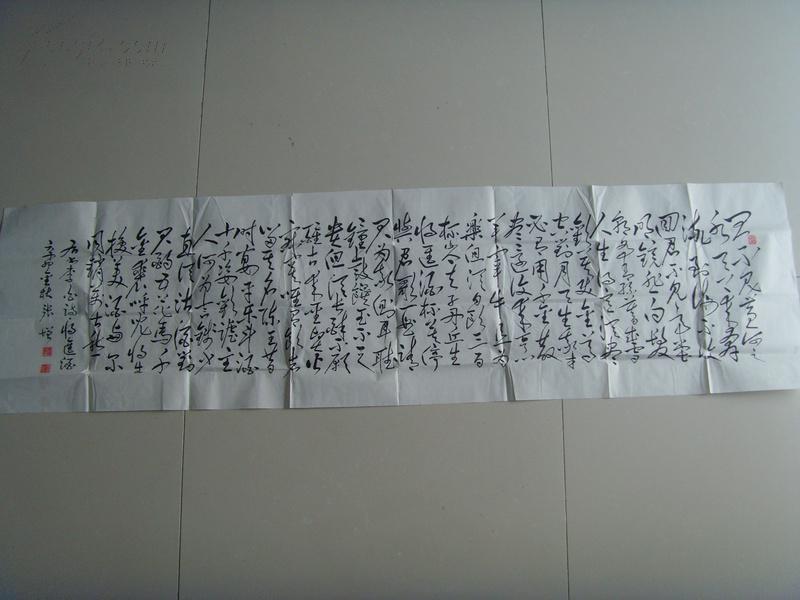 君不见黄河之
水天上来奔
流到海不復
回君不见高堂
明镜悲白髮
朝如青丝暮成雪
人生得意须尽
欢莫使金樽
空对月天生我材
必有用千金散
尽还復来烹
羊宰牛且为
樂会须一饮三百
杯岑夫子丹丘生
将進酒杯莫停
與君歌一曲请
君为我倾耳听
钟鼓馔玉不足
贵
醒古来圣贤皆
寂寞惟有饮者
留其名陈王昔
时宴平乐斗酒
十千恣欢谑主
人何为言钱少
直须沽酒对
君酌五花马千
金裘呼儿将出
换美酒与尔
同销万古愁
右书李白诗将進酒
辛卯金秋 张